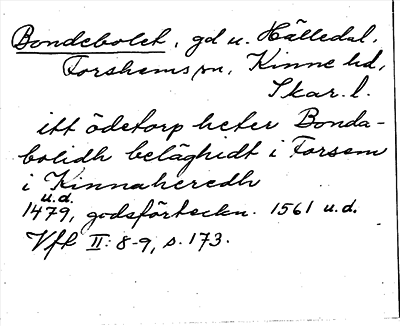 Bondebolet, gd u. Hälledal,
Forshems sn, Kinne hd,
Skar. l.
itt ödetorp heter Bonda-
bolidh beläghidt i Forsem
i Kinnaheredh
u.d.
1479, godsförteckn. 1561 u.d.
Vfl II: 8-9, s. 173.